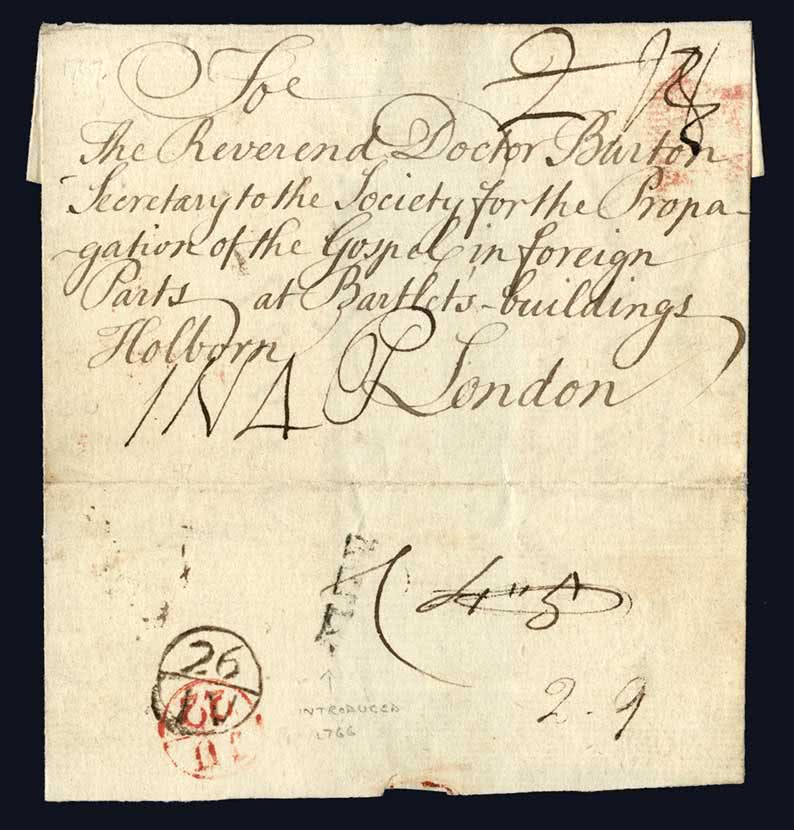 1767.
Toe
2
The Reverend Doctor Burton
Secretary to the Society for the Propa-
-gation of the Gospel, in foreign
Parts at Bartlets-buildings
Holborn
London
1N4
4"5
26
22
2-9
INTRODUCED
1766